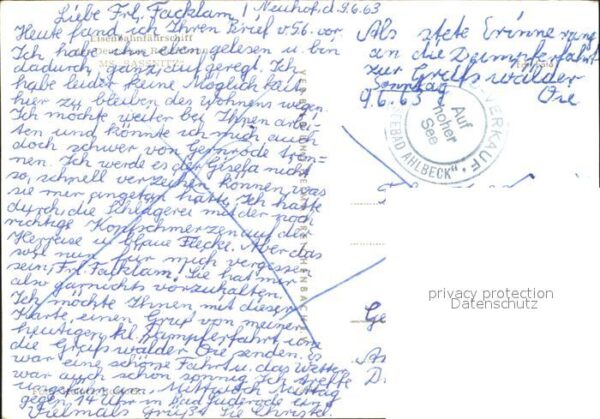 Liebe Frl. Facklam! Neuhof, d. 9.6.63
Heute fand ich Ihren Brief v. 5.6. vor.
Ich habe ihn eben gelesen u. bin
dadurch ganz aufgeregt. Ich
habe leider keine Möglichkeit
hier zu bleiben des Wohnens wegen.
Ich möchte weiter bei Ihnen arbei-
ten und könnte ich mich auch
doch schwer von Gernrode tren-
nen. Ich werde es der Gisela nicht
so schnell verzeihen können, was
sie mir angetan hatte. Ich hatte
durch die Schlägerei mit der noch
richtige Kopfschmerzen auf der
Herreise u. blaue Flecke. Aber das
soll nun für mich vergessen
sein, Frl. Facklam! Sie hat mir
also garnichts vorzuhalten.
Ich möchte Ihnen mit dieser
Karte einen Gruß von meiner
heutigen kl. Dampferfahrt um
die Greifswalder Oie senden. Es
war eine schöne Fahrt u. das Wetter
war auch schön sonnig. Ich treffe
ungefähr am Mittwoch Mittag
gegen 14 Uhr in Bad Suderode ein.
Vielmals Grüßt Sie Christel
Eisenbahnfährschiff
MS. SASSNITZ
Als stete Erinnerung
an die Dampferfahrt
zur Greifswalder
Oie
Sonntag
9.6.63
VERKAUF
Auf
hoher
See
SEEBAD AHLBECK"
privacy protection
Datenschutz